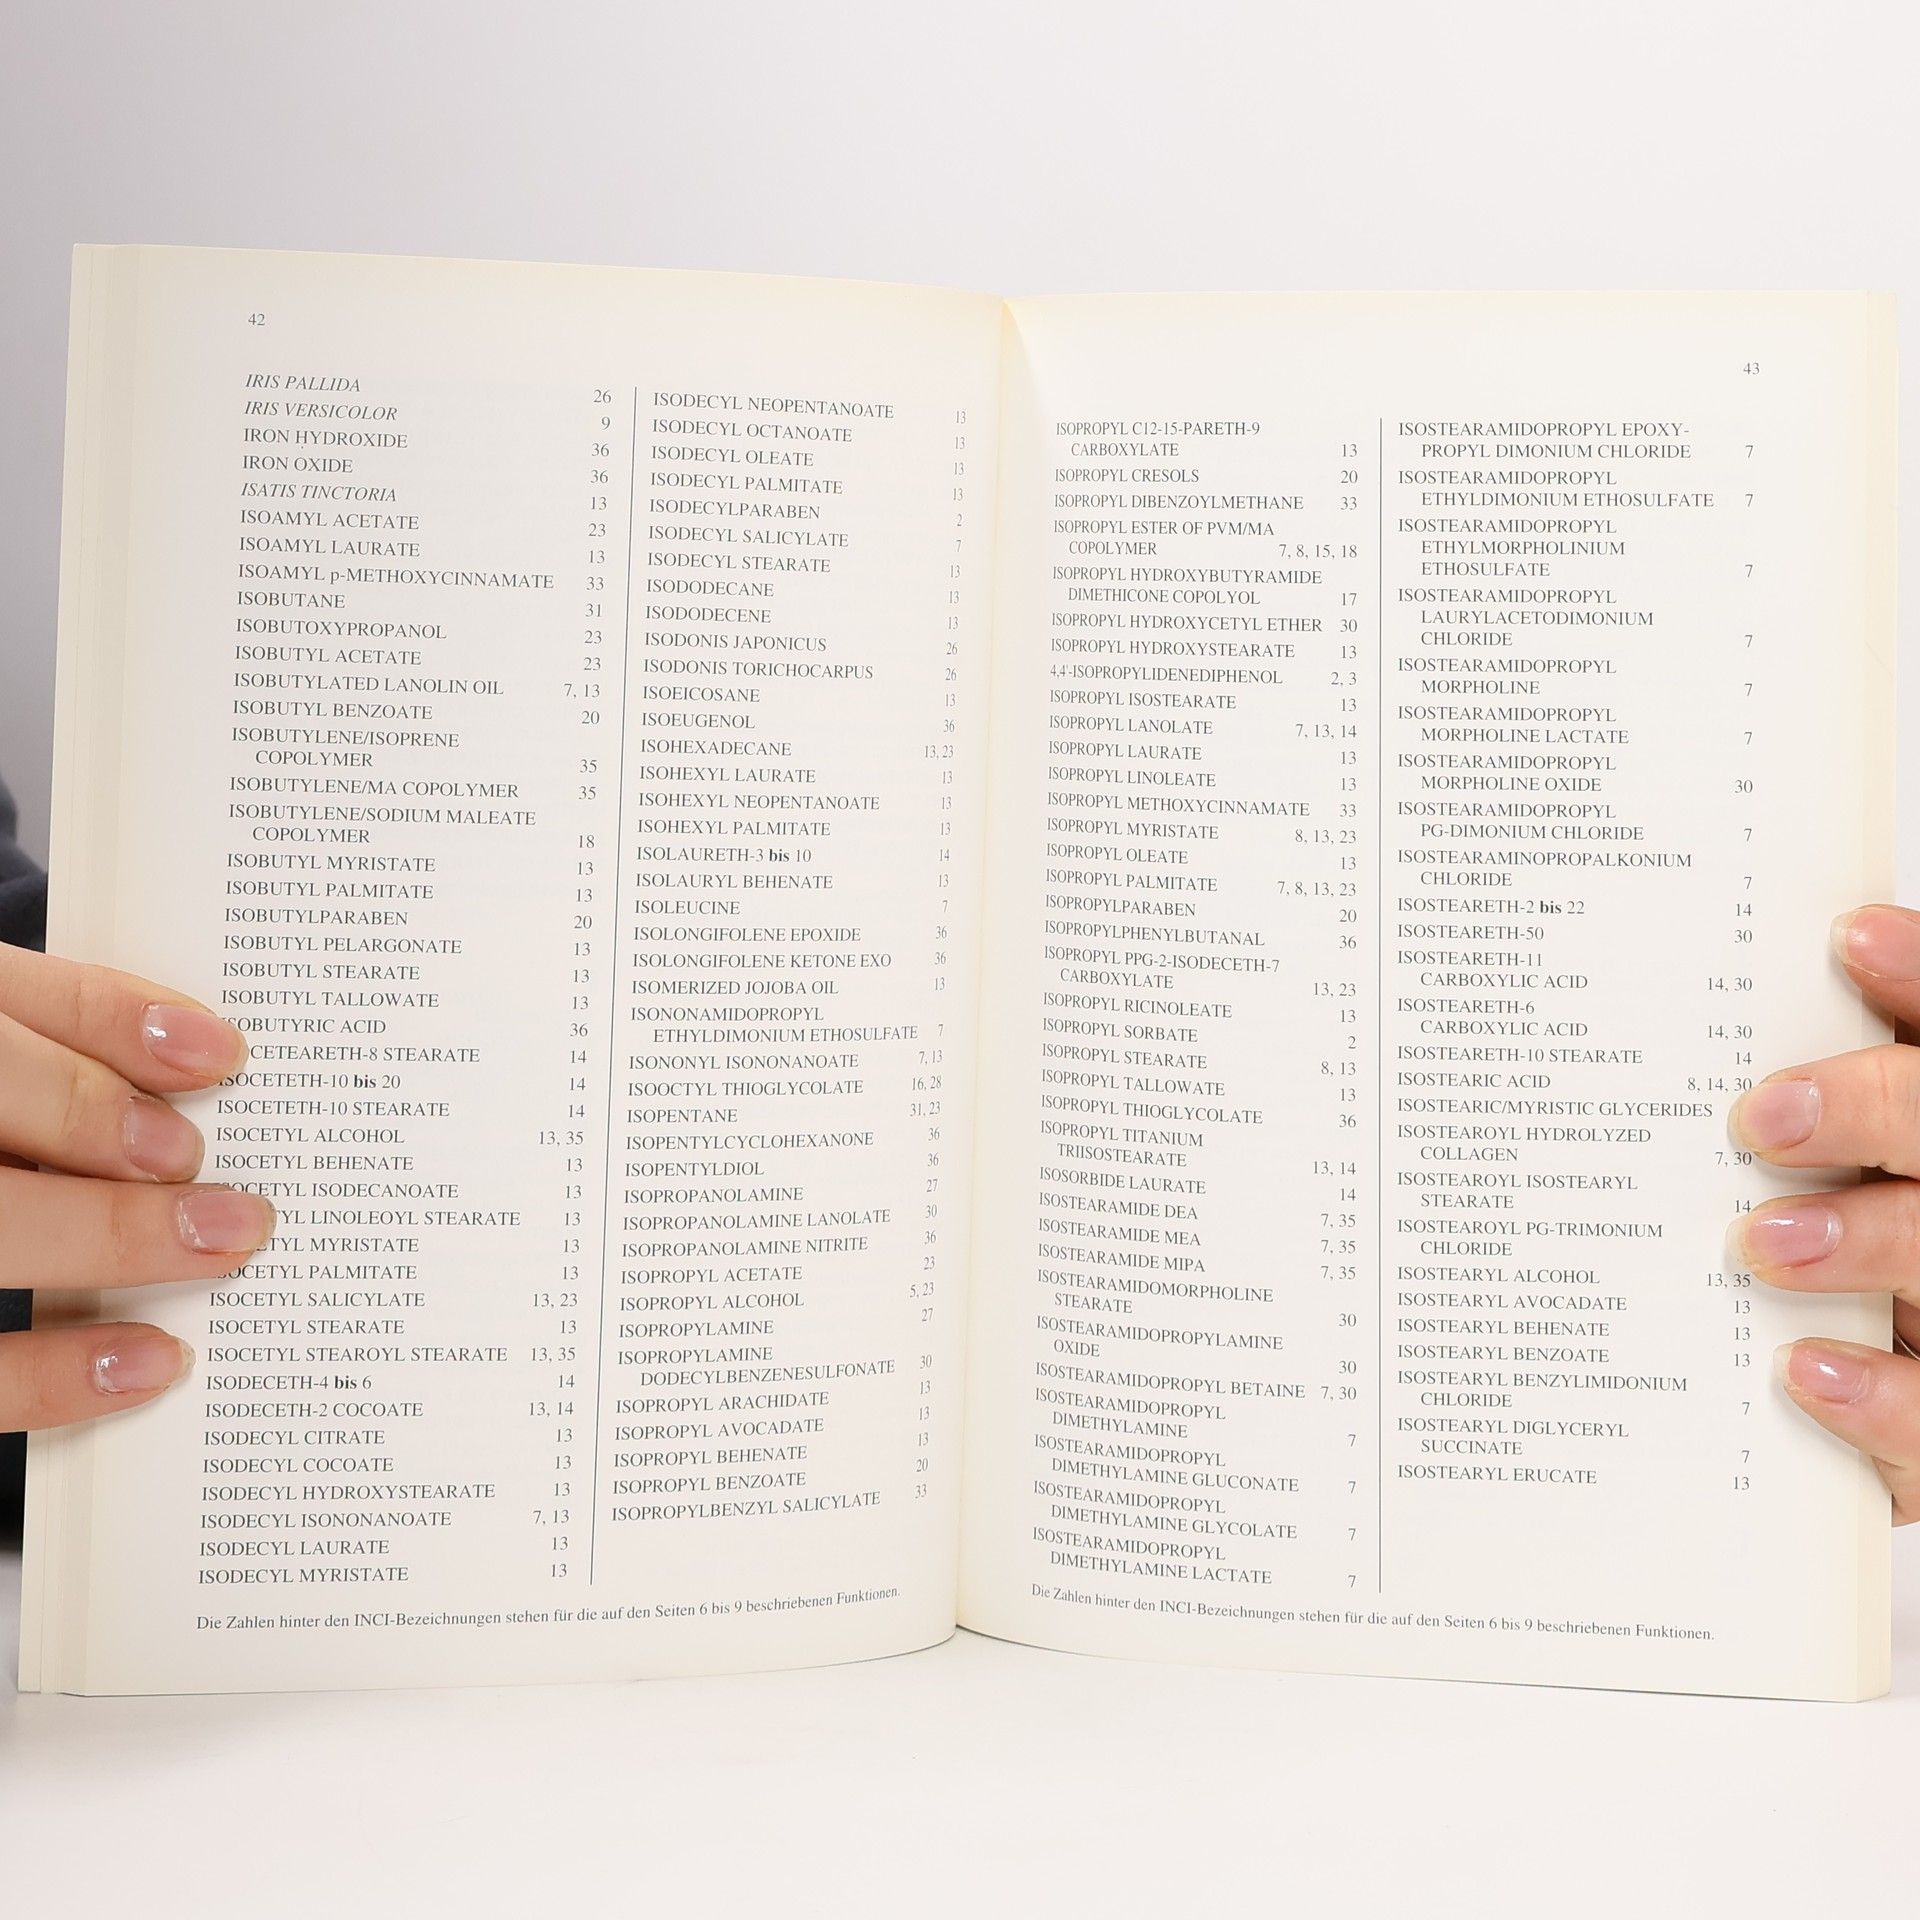 42
IRIS PALLIDA 26
IRIS VERSICOLOR 9
IRON HYDROXIDE 36
IRON OXIDE 36
ISATIS TINCTORIA 13
ISOAMYL ACETATE 23
ISOAMYL LAURATE 13
ISOAMYL p-METHOXYCINNAMATE 33
ISOBUTANE 31
ISOBUTOXYPROPANOL 23
ISOBUTYL ACETATE 23
ISOBUTYLATED LANOLIN OIL 7, 13
ISOBUTYL BENZOATE 20
ISOBUTYLENE/ISOPRENE
COPOLYMER 35
ISOBUTYLENE/MA COPOLYMER 35
ISOBUTYLENE/SODIUM MALEATE
COPOLYMER 18
ISOBUTYL MYRISTATE 13
ISOBUTYL PALMITATE 13
ISOBUTYLPARABEN 20
ISOBUTYL PELARGONATE 13
ISOBUTYL STEARATE 13
ISOBUTYL TALLOWATE 13
ISOBUTYRIC ACID 36
STEARATE 14
ISOCETETH-10 bis 20 14
ISOCETETH-10 STEARATE 14
ISOCETYL ALCOHOL 13, 35
ISOCETYL BEHENATE 13
ISODECANOATE 13
LINOLEOYL STEARATE 13
MYRISTATE 13
PALMITATE 13
ISOCETYL SALICYLATE 13, 23
ISOCETYL STEARATE 13
ISOCETYL STEAROYL STEARATE 13, 35
ISODECETH-4 bis 6 14
ISODECETH-2 COCOATE 13, 14
ISODECYL CITRATE 13
ISODECYL COCOATE 13
ISODECYL HYDROXYSTEARATE 13
ISODECYL ISONONANOATE 7, 13
ISODECYL LAURATE 13
ISODECYL MYRISTATE 13
ISODECYL NEOPENTANOATE 13
ISODECYL OCTANOATE 13
ISODECYL OLEATE 13
ISODECYL PALMITATE 13
ISODECYLPARABEN 2
ISODECYL SALICYLATE 7
ISODECYL STEARATE 13
ISODODECANE 13
ISODODECENE 13
ISODONIS JAPONICUS 26
ISODONIS TORICHOCARPUS 26
ISOEICOSANE 13
ISOEUGENOL 36
ISOHEXADECANE 13, 23
ISOHEXYL LAURATE 13
ISOHEXYL NEOPENTANOATE 13
ISOHEXYL PALMITATE 13
ISOLAURETH-3 bis 10 14
ISOLAURYL BEHENATE 13
ISOLEUCINE 7
ISOLONGIFOLENE EPOXIDE 36
ISOLONGIFOLENE KETONE EXO 36
ISOMERIZED JOJOBA OIL 13
ISONONAMIDOPROPYL
ETHYLDIMONIUM ETHOSULFATE 7
ISONONYL ISONONANOATE 7, 13
ISOOCTYL THIOGLYCOLATE 16, 28
ISOPENTANE 31, 23
ISOPENTYLCYCLOHEXANONE 36
ISOPENTYLDIOL 36
ISOPROPANOLAMINE 27
ISOPROPANOLAMINE LANOLATE 30
ISOPROPANOLAMINE NITRITE 36
ISOPROPYL ACETATE 23
ISOPROPYL ALCOHOL 5, 23
ISOPROPYLAMINE 27
ISOPROPYLAMINE
DODECYLBENZENESULFONATE 30
ISOPROPYL ARACHIDATE 13
ISOPROPYL AVOCADATE 13
ISOPROPYL BEHENATE 13
ISOPROPYL BENZOATE 20
ISOPROPYLBENZYL SALICYLATE 33
Die Zahlen hinter den INCI-Bezeichnungen stehen für die auf den Seiten 6 bis 9 beschriebenen Funktionen.
43
ISOPROPYL C12-15-PARETH-9
CARBOXYLATE 13
ISOPROPYL CRESOLS 20
ISOPROPYL DIBENZOYLMETHANE 33
ISOPROPYL ESTER OF PVM/MA
COPOLYMER 7, 8, 15, 18
ISOPROPYL HYDROXYBUTYRAMIDE
DIMETHICONE COPOLYOL 17
ISOPROPYL HYDROXYCETYL ETHER 30
ISOPROPYL HYDROXYSTEARATE 13
4,4'-ISOPROPYLIDENEDIPHENOL 2, 3
ISOPROPYL ISOSTEARATE 13
ISOPROPYL LANOLATE 7, 13, 14
ISOPROPYL LAURATE 13
ISOPROPYL LINOLEATE 13
ISOPROPYL METHOXYCINNAMATE 33
ISOPROPYL MYRISTATE 8, 13, 23
ISOPROPYL OLEATE 13
ISOPROPYL PALMITATE 7, 8, 13, 23
ISOPROPYLPARABEN 20
ISOPROPYLPHENYLBUTANAL 36
ISOPROPYL PPG-2-ISODECETH-7
CARBOXYLATE 13, 23
ISOPROPYL RICINOLEATE 13
ISOPROPYL SORBATE 2
ISOPROPYL STEARATE 8, 13
ISOPROPYL TALLOWATE 13
ISOPROPYL THIOGLYCOLATE 36
ISOPROPYL TITANIUM
TRIISOSTEARATE 13, 14
ISOSORBIDE LAURATE 14
ISOSTEARAMIDE DEA 7, 35
ISOSTEARAMIDE MEA 7, 35
ISOSTEARAMIDE MIPA 7, 35
ISOSTEARAMIDOMORPHOLINE
STEARATE 30
ISOSTEARAMIDOPROPYLAMINE
OXIDE 30
ISOSTEARAMIDOPROPYL BETAINE 7, 30
ISOSTEARAMIDOPROPYL
DIMETHYLAMINE 7
ISOSTEARAMIDOPROPYL
DIMETHYLAMINE GLUCONATE 7
ISOSTEARAMIDOPROPYL
DIMETHYLAMINE GLYCOLATE 7
ISOSTEARAMIDOPROPYL
DIMETHYLAMINE LACTATE 7
ISOSTEARAMIDOPROPYL EPOXY-
PROPYL DIMONIUM CHLORIDE 7
ISOSTEARAMIDOPROPYL
ETHYLDIMONIUM ETHOSULFATE 7
ISOSTEARAMIDOPROPYL
ETHYLMORPHOLINIUM
ETHOSULFATE 7
ISOSTEARAMIDOPROPYL
LAURYLACETODIMONIUM
CHLORIDE 7
ISOSTEARAMIDOPROPYL
MORPHOLINE 7
ISOSTEARAMIDOPROPYL
MORPHOLINE LACTATE 7
ISOSTEARAMIDOPROPYL
MORPHOLINE OXIDE 30
ISOSTEARAMIDOPROPYL
PG-DIMONIUM CHLORIDE 7
ISOSTEARAMINOPROPALKONIUM
CHLORIDE 7
ISOSTEARETH-2 bis 22 14
ISOSTEARETH-50 30
ISOSTEARETH-11
CARBOXYLIC ACID 14, 30
ISOSTEARETH-6
CARBOXYLIC ACID 14, 30
ISOSTEARETH-10 STEARATE 14
ISOSTEARIC ACID 8, 14, 30
ISOSTEARIC/MYRISTIC GLYCERIDES
ISOSTEAROYL HYDROLYZED
COLLAGEN 7, 30
ISOSTEAROYL ISOSTEARYL
STEARATE 14
ISOSTEAROYL PG-TRIMONIUM
CHLORIDE
ISOSTEARYL ALCOHOL 13, 35
ISOSTEARYL AVOCADATE 13
ISOSTEARYL BEHENATE 13
ISOSTEARYL BENZOATE 13
ISOSTEARYL BENZYLIMIDONIUM
CHLORIDE 7
ISOSTEARYL DIGLYCERYL
SUCCINATE 7
ISOSTEARYL ERUCATE 13
Die Zahlen hinter den INCI-Bezeichnungen stehen für die auf den Seiten 6 bis 9 beschriebenen Funktionen.